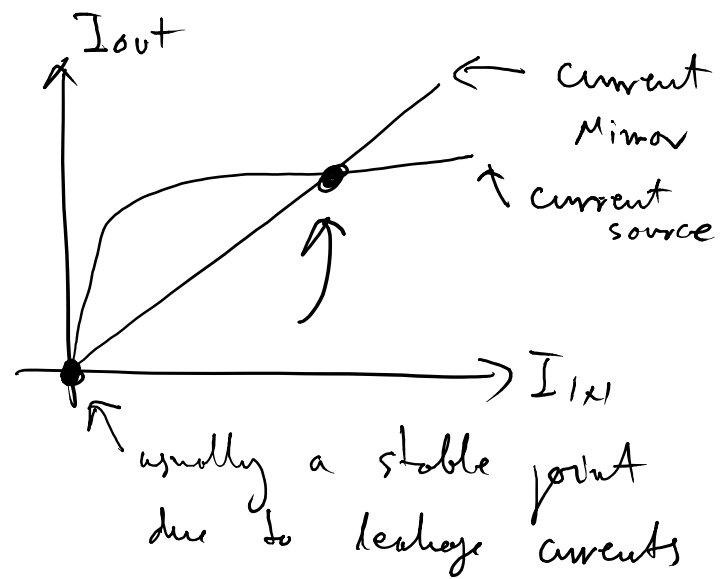 Iout
current
Mirror
current
source
I
usually a stable point
due to leakage currents